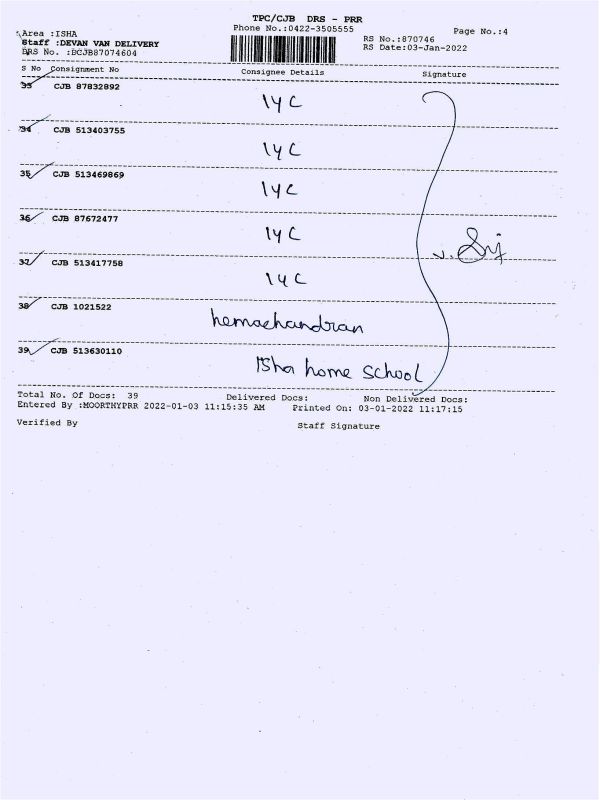 TPC/CJB DRS - PRR
Area :ISHA Phone No.:0422-3505555 Page No.:4
Staff :DEVAN VAN DELIVERY RS No.:870746
DRS No. :BCJB87074604 RS Date:03-Jan-2022
S No Consignment No Consignee Details Signature
33 CJB 87832892
IYC
34 CJB 513403755
IYC
35 CJB 513469869
IYC
36 CJB 87672477
IYC
37 CJB 513417758
IYC
38 CJB 1021522
hemachandran
39 CJB 513630110
Isha home School
Total No. Of Docs: 39 Delivered Docs: Non Delivered Docs:
Entered By :MOORTHYPRR 2022-01-03 11:15:35 AM Printed On: 03-01-2022 11:17:15
Verified By Staff Signature